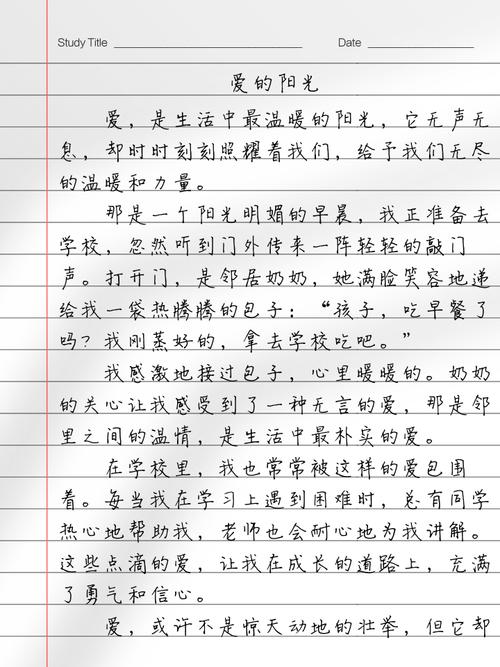 Study Title
Date
爱的阳光
爱，是生活中最温暖的阳光，它无声无
息，却时时刻刻照耀着我们，给予我们无尽
的温暖和力量。
那是一个阳光明媚的早晨，我正准备去
学校，忽然听到门外传来一阵轻轻的敲门
声。打开门，是邻居奶奶，她满脸笑容地递
给我一袋热腾腾的包子：“孩子，吃早餐了
吗？我刚蒸好的，拿去学校吃吧。”
我感激地接过包子，心里暖暖的。奶奶
的关心让我感受到了一种无言的爱，那是邻
里之间的温情，是生活中最朴实的爱。
在学校里，我也常常被这样的爱包围
着。每当我在学习上遇到困难时，总有同学
热心地帮助我，老师也会耐心地为我讲解。
这些点滴的爱，让我在成长的道路上，充满
了勇气和信心。
爱，或许不是惊天动地的壮举，但它却